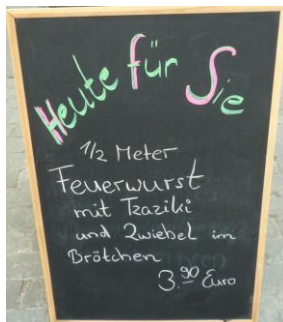 Heute für Sie
1/2 Meter
Feuerwurst
mit Tzaziki
und Zwiebel im
Brötchen
3.90 Euro